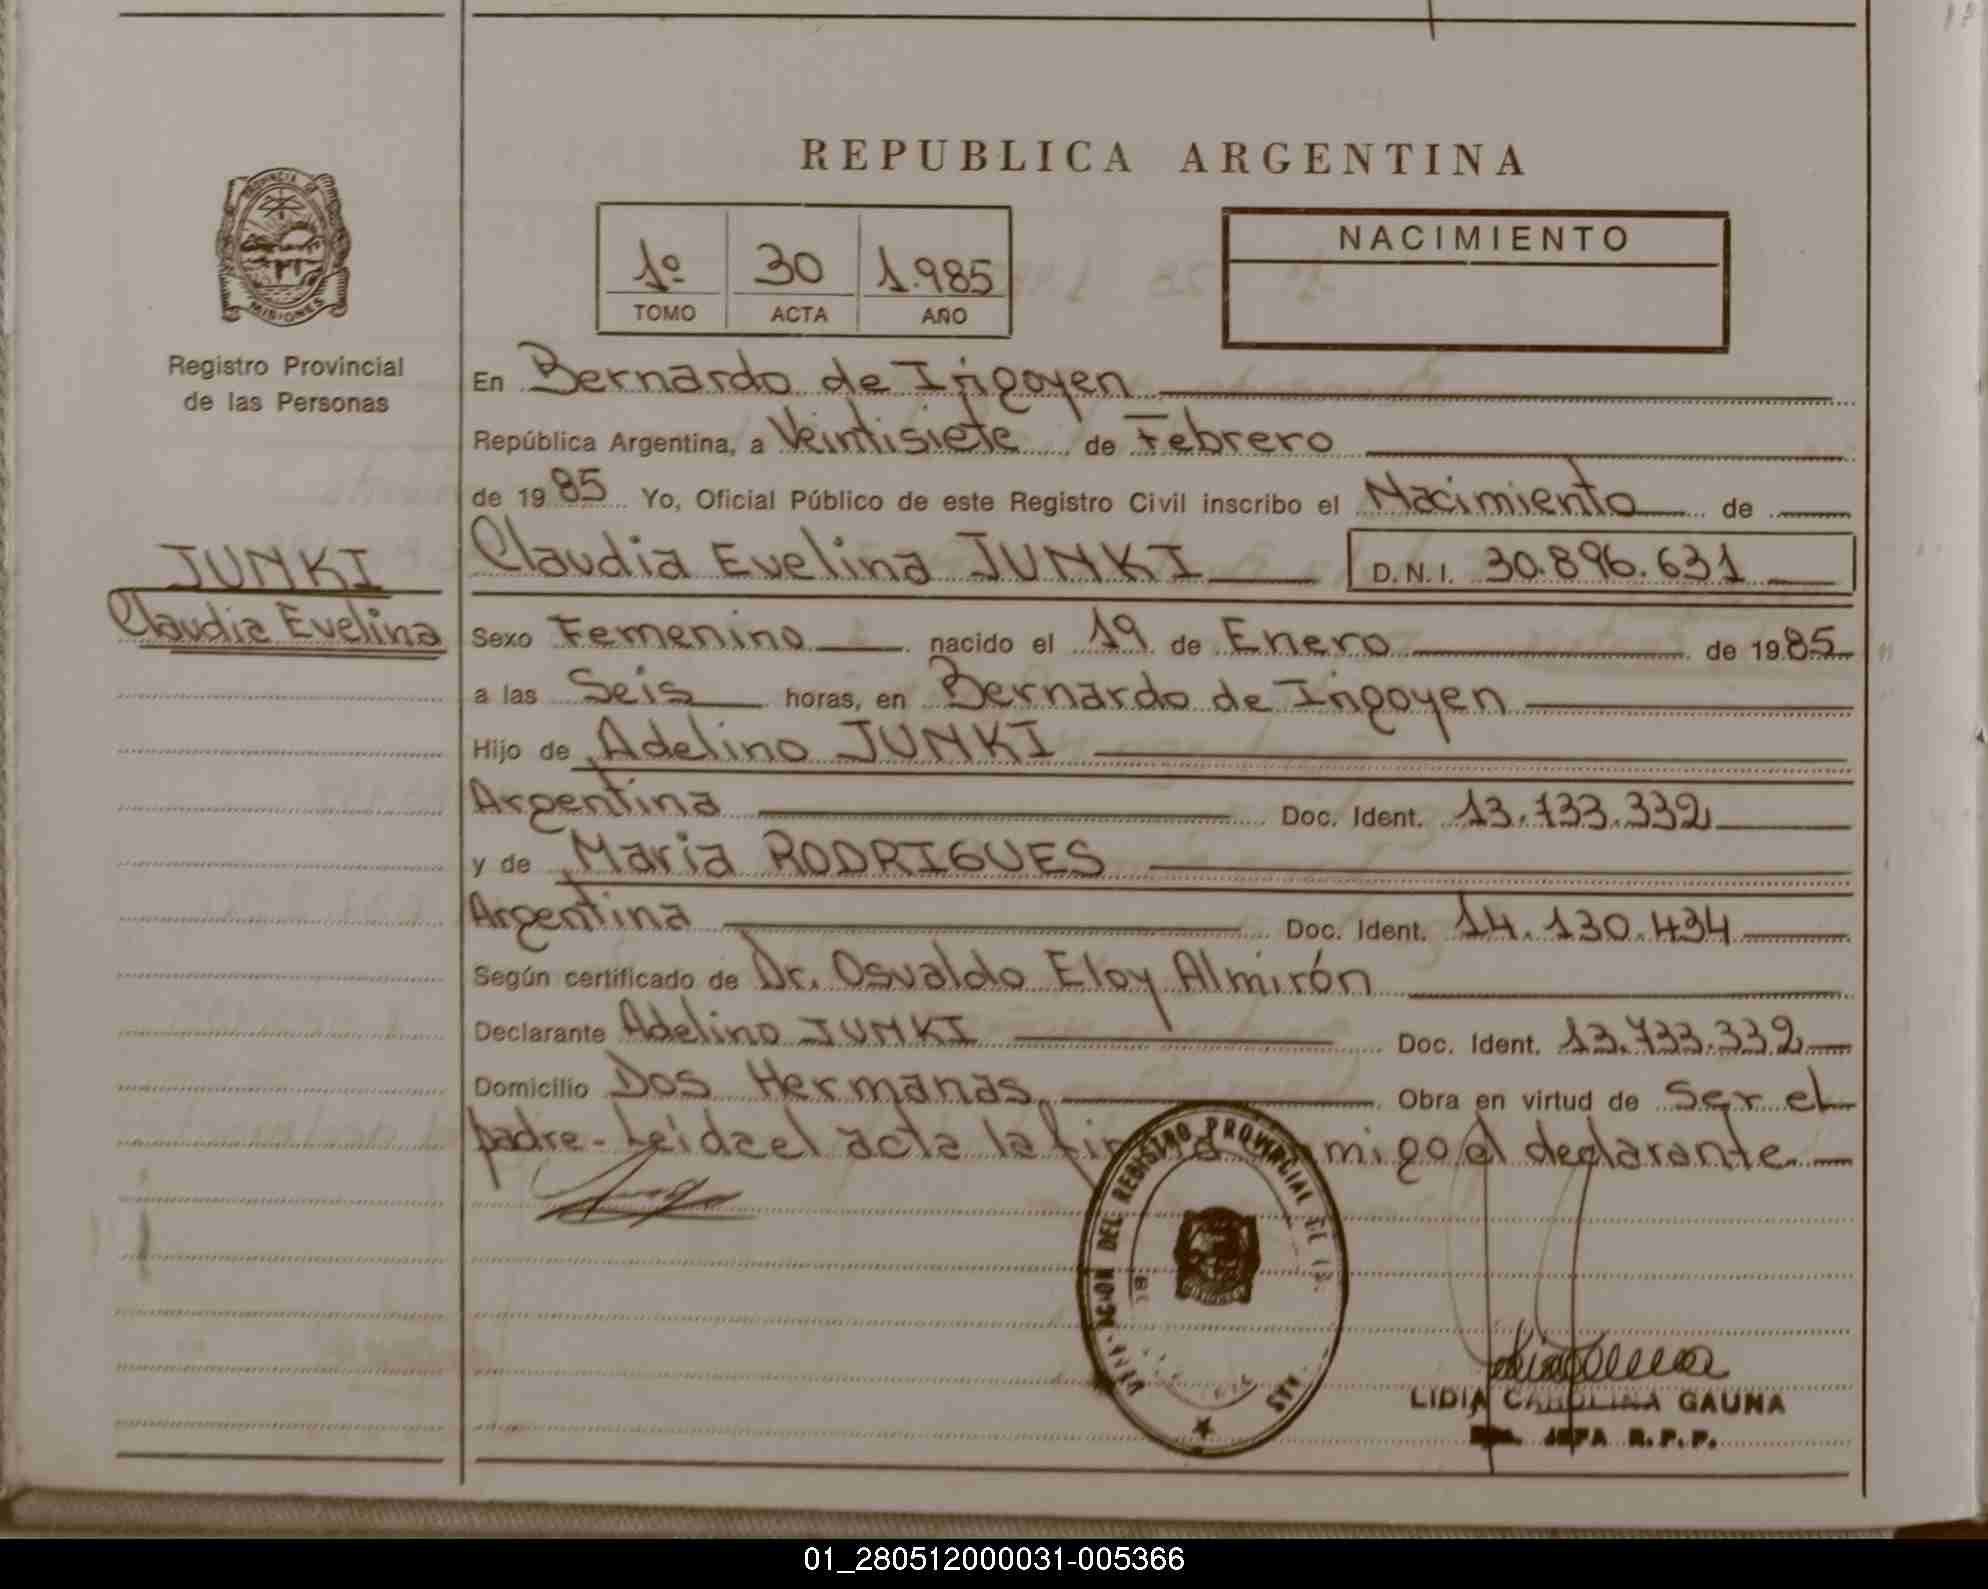 REPUBLICA ARGENTINA
PROVINCIA DE
MISIONES
Registro Provincial
de las Personas
1º 30 1.985
TOMO ACTA AÑO
NACIMIENTO
En Bernardo de Irigoyen
República Argentina, a Veintisiete de Febrero
de 1985 Yo, Oficial Público de este Registro Civil inscribo el Nacimiento de
JUNKI
Claudia Evelina
Claudia Evelina JUNKI D.N.I. 30.896.631
Sexo Femenino nacido el 19 de Enero de 1985
a las Seis horas, en Bernardo de Irigoyen
Hijo de Adelino JUNKI
Argentina Doc. Ident. 13.733.332
y de Maria RODRIGUES
Argentina Doc. Ident. 14.130.434
Según certificado de Dr. Osvaldo Eloy Almirón
Declarante Adelino JUNKI Doc. Ident. 13.733.332
Domicilio Dos Hermanas. Obra en virtud de Ser el
padre - Leída el acta la conmigo el declarante.
DEL REGISTRO PROVINCIAL DE
LIDIA CAROLINA GAUNA
JEFA R.P.P.
01_280512000031-005366